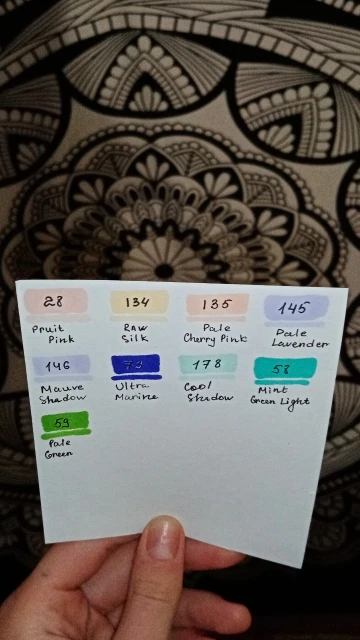 28 134 135 145
Fruit Pink
Raw Silk
Pale Cherry Pink
Pale Lavender
146 73 178 58
Mauve Shadow
Ultra Marine
Cool Shadow
Mint Green Light
59
Pale Green